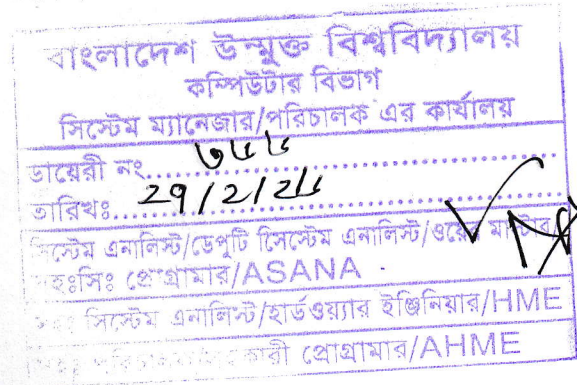 বাংলাদেশ উন্মুক্ত বিশ্ববিদ্যালয়
কম্পিউটার বিভাগ
সিস্টেম ম্যানেজার/পরিচালক এর কার্যালয়
ডায়েরী নং
তারিখঃ
সিস্টেম এনালিস্ট/ডেপুটি সিস্টেম এনালিস্ট/ওয়েব মাস্টার/
সহঃসিঃ প্রোগ্রামার/ASANA
সিস্টেম এনালিস্ট/হার্ডওয়্যার ইঞ্জিনিয়ার/HME
প্রোগ্রামার/AHME